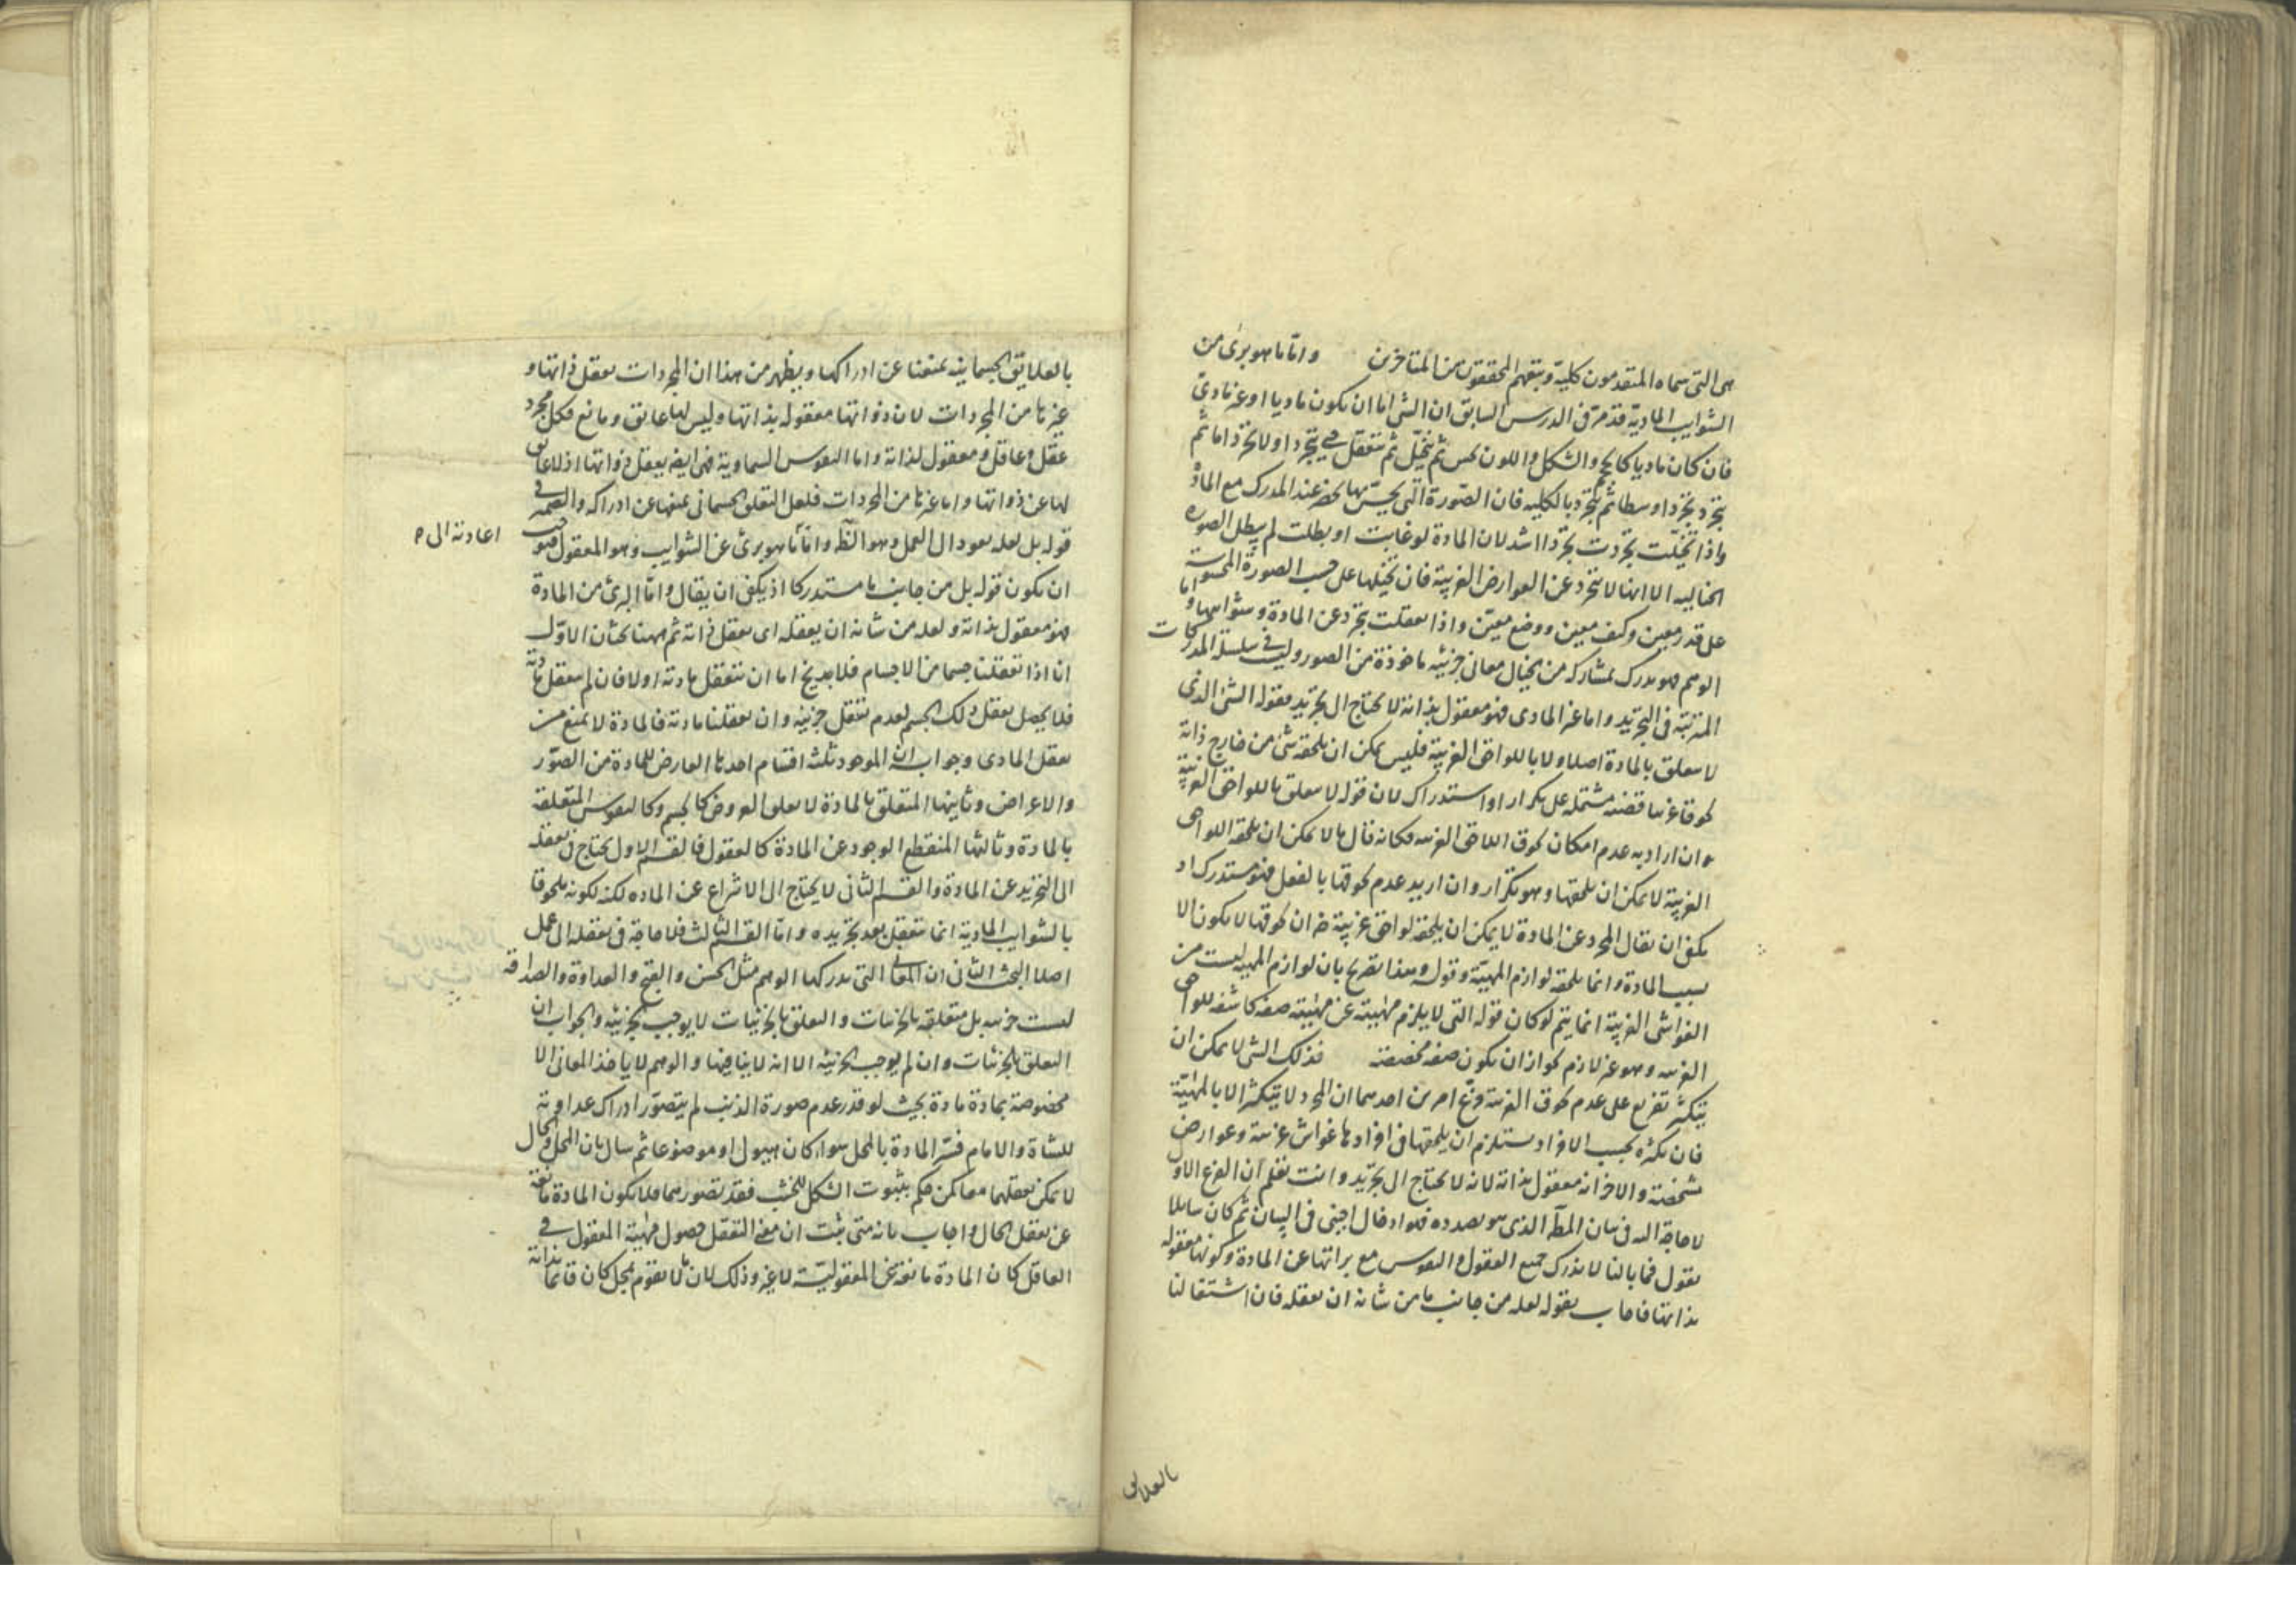 هى التى سماه المتقدمون كلية وتبعهم المحققون من المتاخرين واما ما هو برىٔ من
الشوايب المادية قد مر فى الدرس السابق ان الشى اما ان يكون ماديا او غير مادى
فان كان ماديا كالجسم والشكل واللون يحس ثم يتخيل ثم يتعقل حتى يتجرد اولا تجردا ما ثم
يتجرد تجردا وسطا ثم يتجرد بالكليه فان الصورة التى يحس بها يحضر عند المدرك مع المادة
واذا تخيلت تجردت تجردا اشد لان المادة لو غابت او بطلت لم يبطل الصورة
الخياليه الا انها لا تتجرد عن العوارض الغريبة فان تخيلها على حسب الصورة المحسوسة
على قدر معين وكيف معين ووضع معين واذا تعقلت تجرد عن المادة وشوائبها واما
الوهم فهو يدرك بمشاركة من الخيال معانى جزئيه ماخوذة من الصور وليس فى سلسلة المدركات
المترتبة فى التجريد واما غير المادى فهو معقول بذاته لا يحتاج الى تجريد فقوله الشى الذى
لا يتعلق بالمادة اصلا ولا باللواحق الغريبة فليس يمكن ان يلحقه شى من خارج ذاته
لحوقا غريبا قضيه مشتمله على تكرار او استدراك لان قوله لا يتعلق باللواحق الغريبة
ان اراد به عدم امكان لحوق اللاحق الغريبه فكانه قال ما لا يمكن ان يلحقه اللواحق
الغريبة لا يمكن ان يلحقها وهو تكرار وان اريد عدم لحوقها بالفعل فهو مستدرك اذ
يكفى ان يقال المجرد عن المادة لا يمكن ان يلحقه لواحق غريبة ضر ان لحوقها لا يكون الا
بسبب المادة وانما يلحقه لوازم المهية وقوله وهذا تصريح بان لوازم المهيه ليست من
الغواشى الغريبة انما يتم لو كان قوله التى لا يلزم مهيته عن مهيته صفه كاشفه للواحق
الغريبه وهو غير لازم لجواز ان يكون صفه مخصصة فذلك الشى لا يمكن ان
يتكثر تفريع على عدم لحوق الغريبة وفرع امرين احدهما ان المجرد لا يتكثر الا بالمهية
فان تكثره بحسب الافراد يستلزم ان يلحقها فى افرادها غواش غريبة وعوارض
مشخصة والاخر انه معقول بذاته لانه لا يحتاج الى تجريد وانت تعلم ان الفرع الاول
لا حاجة اليه فى بيان المط الذى هو بصدده فهو ادخال اجنبى فى البيان ثم كان سائلا
يقول فما بالنا لا ندرك جميع العقول والنفوس مع براتها عن المادة وكونها معقولة
بذاتها فاجاب بقوله لعله من جانب ما من شانه ان يعقله فان اشتغالنا
بالعلايق
بالعلايق الجسمانية يمنعنا عن ادراكها ويظهر من هذا ان المجردات تعقل ذواتها و
غيرها من المجردات لان ذواتها معقوله بذاتها وليس لها عايق ومانع فكل مجرد
عقل وعاقل ومعقول لذاته واما النفوس السماوية فهى ايضا يعقل ذواتها اذ لا عايق
لها عن ذواتها واما غيرها من المجردات فلعل التعلق الجسمانى يمنعها عن ادراكه والضمير فى
قوله بل لعله يعود الى العمل وهو الظ واما ما هو برىٔ عن الشوايب وهو المعقول فيوجب
اعادته الى ه
ان يكون قوله بل من جانب ما مستدركا اذ يكفى ان يقال واما البرىٔ من المادة
فهو معقول بذاته ولعله من شانه ان يعقله اى يعقل ذاته ثم ههنا بحثان الاول
انا اذا تعقلنا جسما من الاجسام فلا يخ اما ان نتعقل مادته اولا فان لم يتعقل مادته
فلا يحصل تعقل ذلك الجسم لعدم تعقل جزئيه وان تعقلنا مادته فالمادة لا تمنع من
تعقل المادى وجوابه ان الموجود ثلث اقسام احدها العارض للمادة من الصور
والاعراض وثانيها المتعلق بالمادة لا تعلق العروض كالجسم وكالنفوس المتعلقة
بالمادة وثالثها المنقطع الوجود عن المادة كالعقول فالقسم الاول يحتاج فى تعقله
الى التجريد عن المادة والقسم الثانى لا يحتاج الى الانتزاع عن الماده لكنه لكونه ملحوقا
بالشوايب المادية انما يتعقل بعد تجريده واما القسم الثالث فلا حاجة فى تعقله الى عمل
اصلا البحث الثانى ان المعانى التى يدركها الوهم مثل الحسن والقبح والعداوة والصداقة
ليست جزئيه بل متعلقه بالجزئيات والتعلق بالجزئيات لا يوجب الجزئيه والجواب ان
التعلق بالجزئيات وان لم يوجب الجزئيه الا انه لا ينافيها والوهم لا ياخذ المعانى الا
مخصوصة بمادة مادة بحيث لو قدر عدم صورة الذئب لم يتصور ادراك عداوته
للشاة والامام فسر المادة بالمحل سواء كان هيولى او موضوعا ثم سال بان المحل والحال
لا يمكن تعقلهما معا كمن حكم بثبوت الشكل للخشب فقد تصورهما فلا يكون المادة مانعة
عن تعقل الحال واجاب بانه متى ثبت ان معنى التعقل حصول مهية المعقول فى
العاقل كان المادة مانعة عن المعقولية لا غير وذلك لان ما لا يقوم بمحل كان قائما بذاته